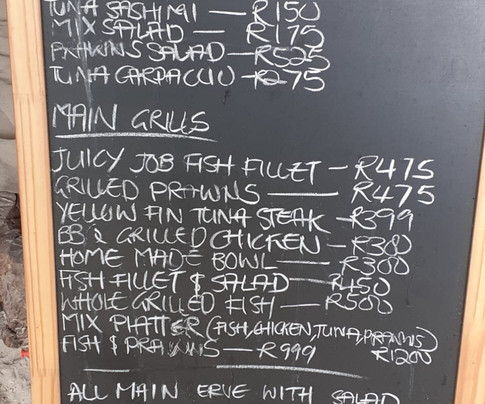 TUNA SASHIMI — R150
MIX SALAD — R175
PRAWNS SALAD — R525
TUNA CARPACCIO — R275
MAIN GRILLS
JUICY JOB FISH FILLET — R475
GRILLED PRAWNS — R475
YELLOW FIN TUNA STEAK — R399
BBQ GRILLED CHICKEN — R380
HOME MADE BOWL — R300
FISH FILLET & SALAD — R450
WHOLE GRILLED FISH — R500
MIX PLATTER (FISH, CHICKEN, TUNA, PRAWNS) R1200
FISH & PRAWNS — R999
ALL MAIN ERVE WITH SALAD